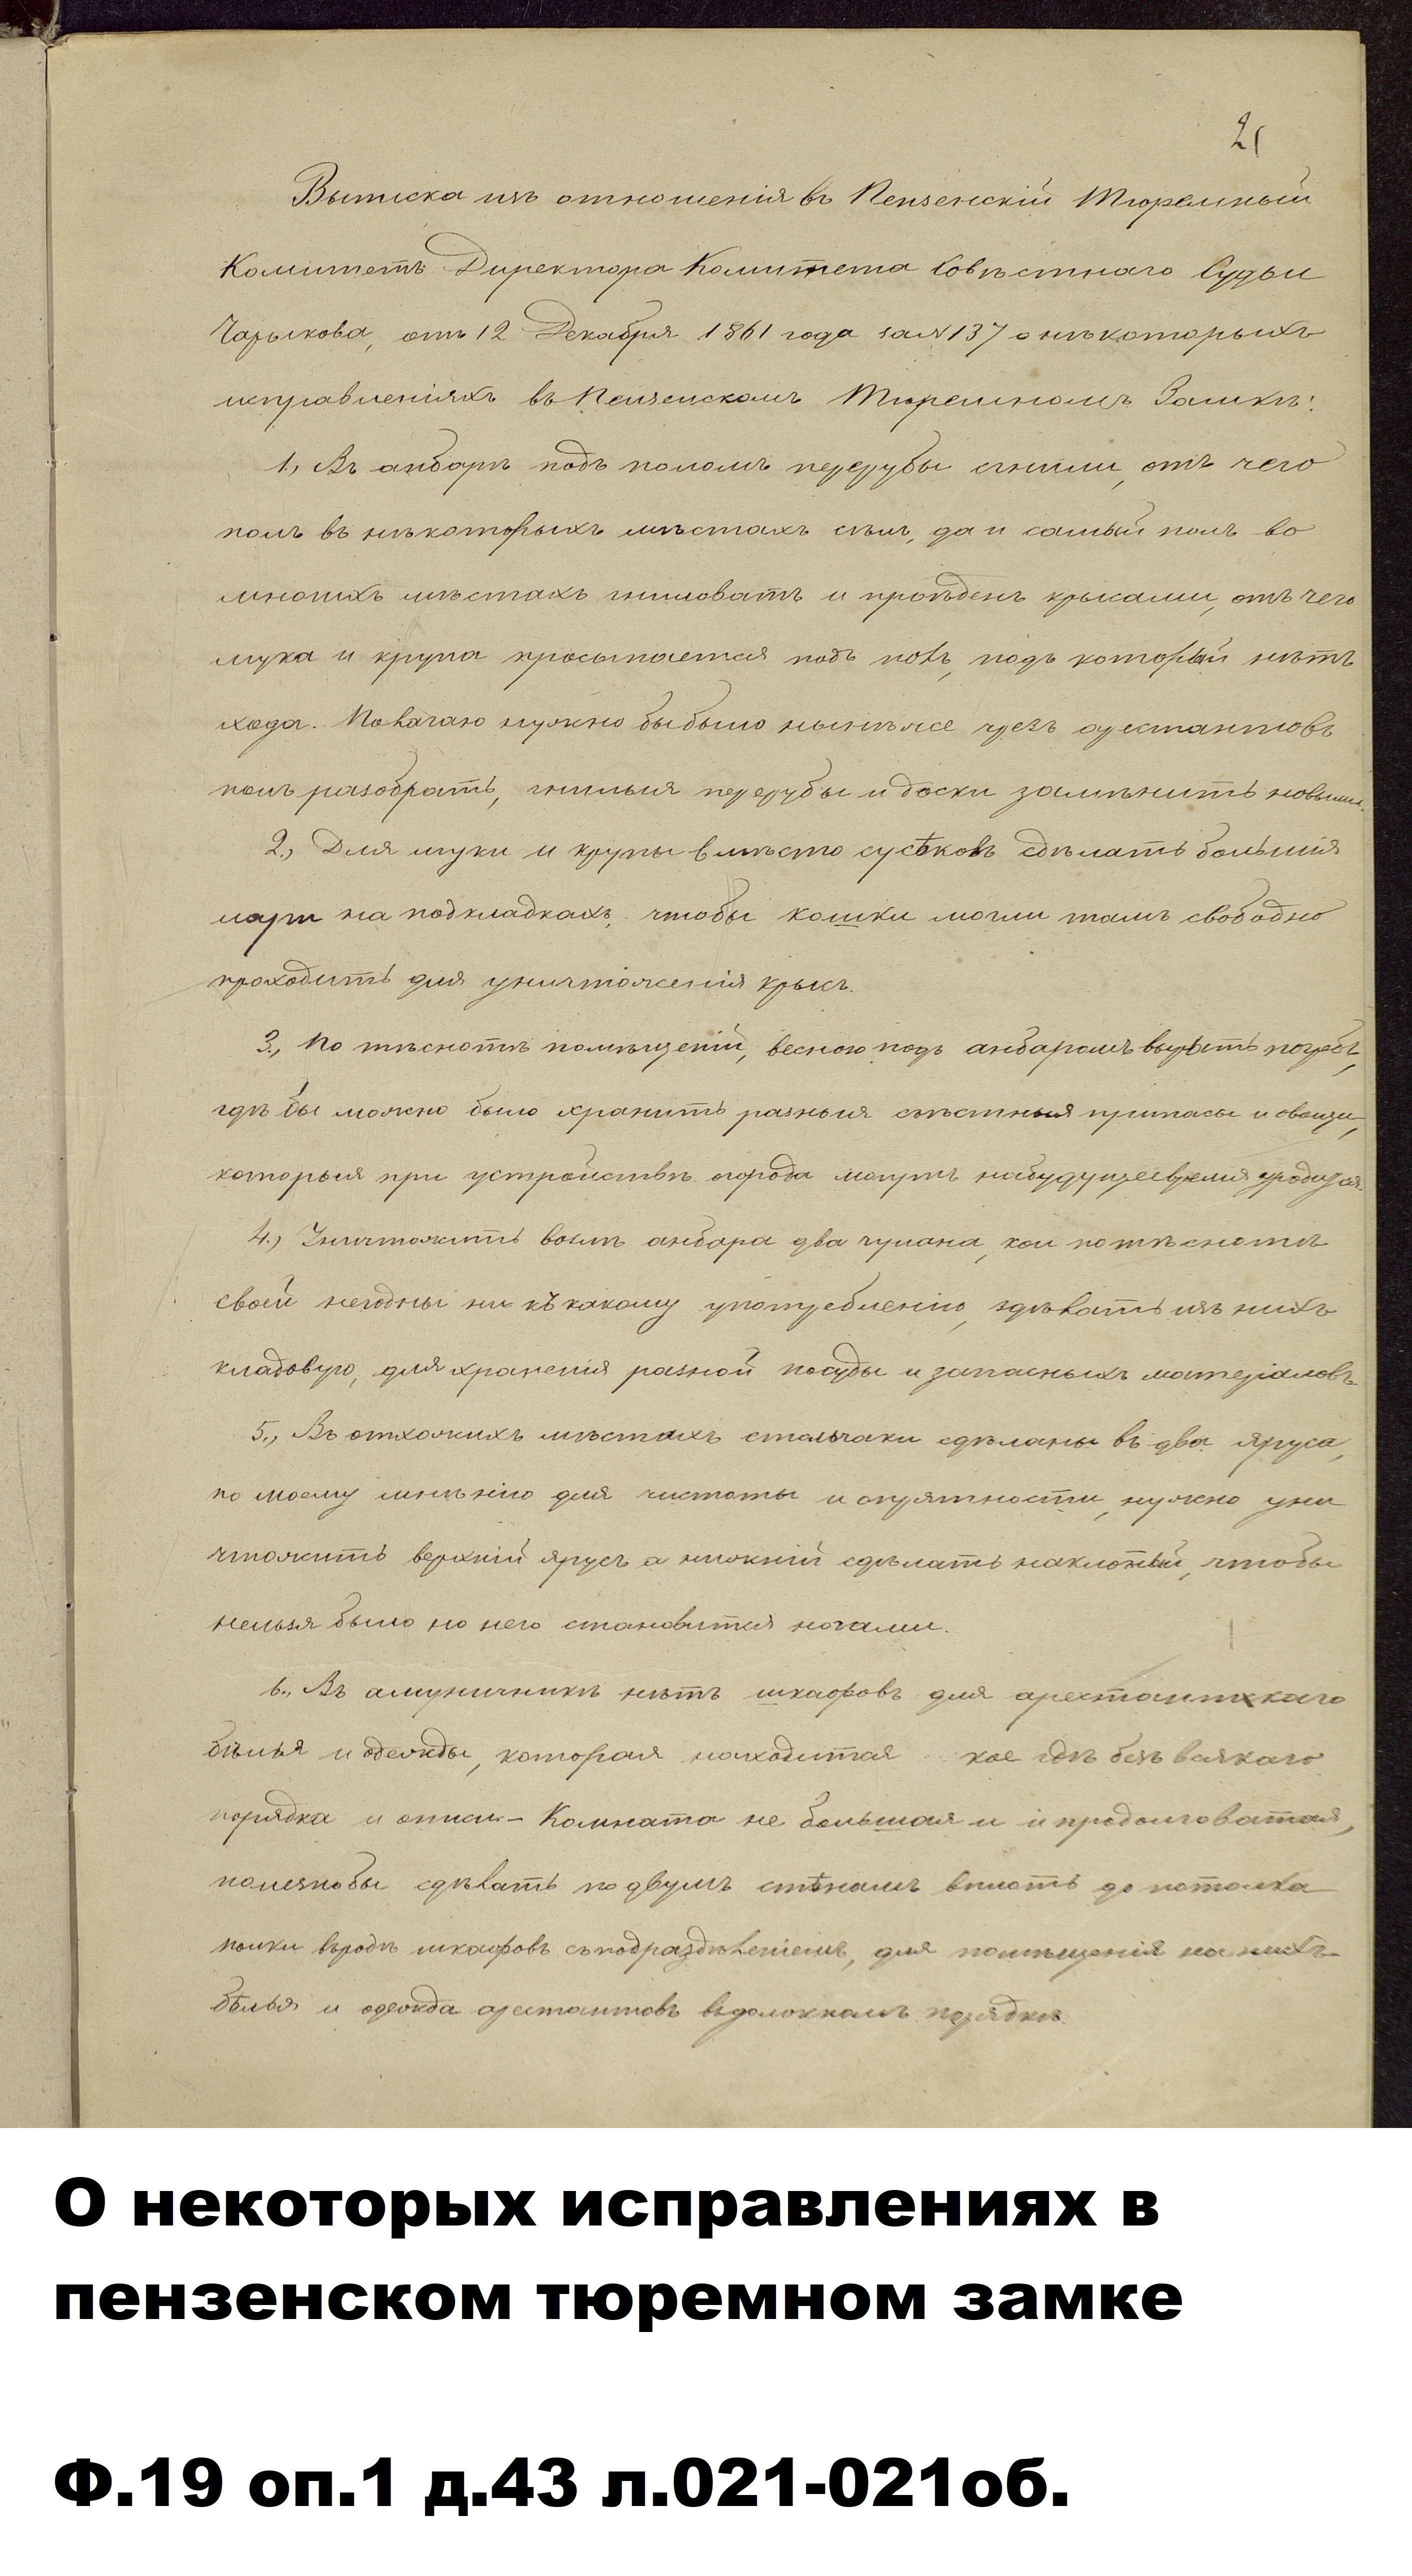 21
Выписка изъ отношенія въ Пензенскій Тюремный
Комитетъ Директора Комитета Совѣстнаго Судьи
Чарыкова, отъ 12 Декабря 1861 года за № 137 о нѣкоторыхъ
исправленіяхъ въ Пензенскомъ Тюремномъ Замкѣ:
1., Въ анбарѣ подъ поломъ перерубы сгнили, отъ чего
полъ въ нѣкоторыхъ мѣстахъ сѣлъ, да и самый полъ во
многихъ мѣстахъ гниловатъ и проѣденъ крысами, отъ чего
мука и крупа просыпается подъ полъ, подъ который нѣтъ
хода. Полагаю нужно бы было нынѣ же чрезъ арестантовъ
полъ разобрать, гнилыя перерубы и доски замѣнить новыми.
2., Для муки и крупы вмѣсто сусѣковъ сдѣлать большія
лари на подкладкахъ, чтобы кошки могли тамъ свободно
проходить для уничтоженія крысъ.
3., По тѣснотѣ помѣщеній, весною подъ анбаромъ вырыть погребъ,
гдѣ бы можно было хранить разныя съѣстныя припасы и овощи,
которыя при устройствѣ огорода могутъ набудущее время
4., Уничтожить возлѣ анбара два чулана, кои по тѣснотѣ
своей негодны ни къ какому употребленію, здѣлать изъ нихъ
кладовую, для храненія разной посуды и запасныхъ матеріаловъ
5., Въ отхожихъ мѣстахъ стольчаки сдѣланы въ два яруса,
по моему мнѣнію для чистоты и опрятности, нужно уни
чтожить верхній ярусъ а нижній сдѣлать наклонный, чтобы
нельзя было на него становится ногами.
6., Въ амуничникѣ нѣтъ шкафовъ для арестантскаго
бѣлья и одежды, которая находится кое гдѣ безъ всякаго
порядка и описи. – Комната не большая и продолговатая,
полезно бы сдѣлать по двумъ стѣнамъ вплоть до потолка
полки въродѣ шкафовъ съ подраздѣленіемъ, для помѣщенія на нихъ
бѣлья и одежда арестантовъ въ должномъ порядкѣ.
О некоторых исправлениях в
пензенском тюремном замке
Ф.19 оп.1 д.43 л.021-021об.